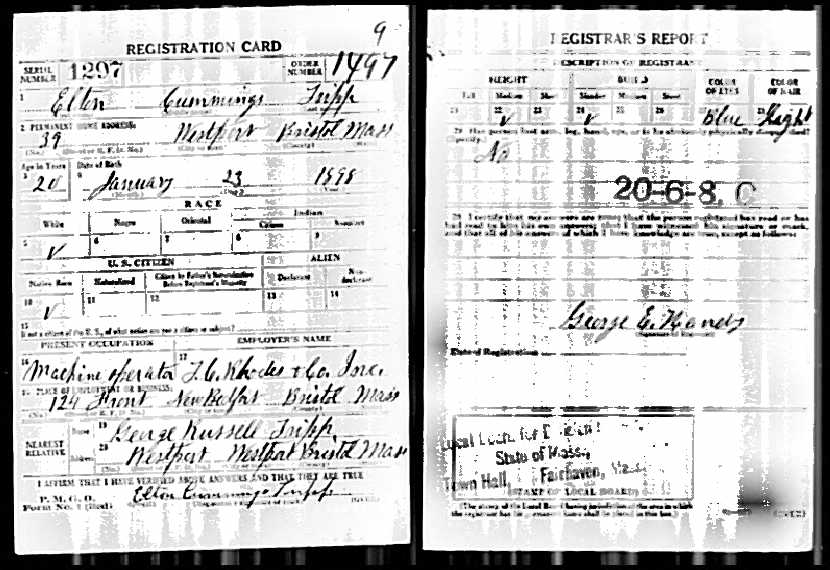 9
REGISTRATION CARD
SERIAL NUMBER 1297 ORDER NUMBER 1497
1 Elton Cummings Tripp
2 PERMANENT HOME ADDRESS:
39 Westport Bristol Mass
Age in Years Date of Birth
3 20 4 January 23 1898
RACE
White Negro Oriental Indian
Citizen
5 V 6 7 8 9
U. S. CITIZEN ALIEN
Native Born Naturalized Citizen by Father's Naturalization Before Registrant's Majority Declarant Non-declarant
10 V 11 12 13 14
15
If not a citizen of the U. S., of what nation are you a citizen or subject?
PRESENT OCCUPATION EMPLOYER'S NAME
16 Machine operator 17 J. C. Rhodes & Co. Inc.
PLACE OF EMPLOYMENT OR BUSINESS:
124 Front New Bedford Bristol Mass
NEAREST RELATIVE
Name 19 George Russell Tripp
Address 20 Westport Westport Bristol Mass
I AFFIRM THAT I HAVE VERIFIED ABOVE ANSWERS AND THAT THEY ARE TRUE
P. M. G. O.
Form No. 1 (Red) Elton Cummings Tripp (OVER)
REGISTRAR'S REPORT
DESCRIPTION OF REGISTRANT
HEIGHT BUILD COLOR OF EYES COLOR OF HAIR
Tall Medium Short Slender Medium Stout
21 22 V 23 24 V 25 26 Blue 28 Light
29 Has person lost arm, leg, hand, eye, or is he obviously physically disqualified?
(Specify.) No
20-6-8. C
30 I certify that my answers are true; that the person registered has read or has
had read to him his own answers; that I have witnessed his signature or mark,
and that all of his answers of which I have knowledge are true, except as follows:
George E. Hands
Date of Registration
Local Board for Division
State of Mass.
Town Hall, Fairhaven, Mass.
(STAMP OF LOCAL BOARD)
(The stamp of the Local Board having jurisdiction of the area in which
the registrant has his permanent home shall be placed in this box.)
(OVER)